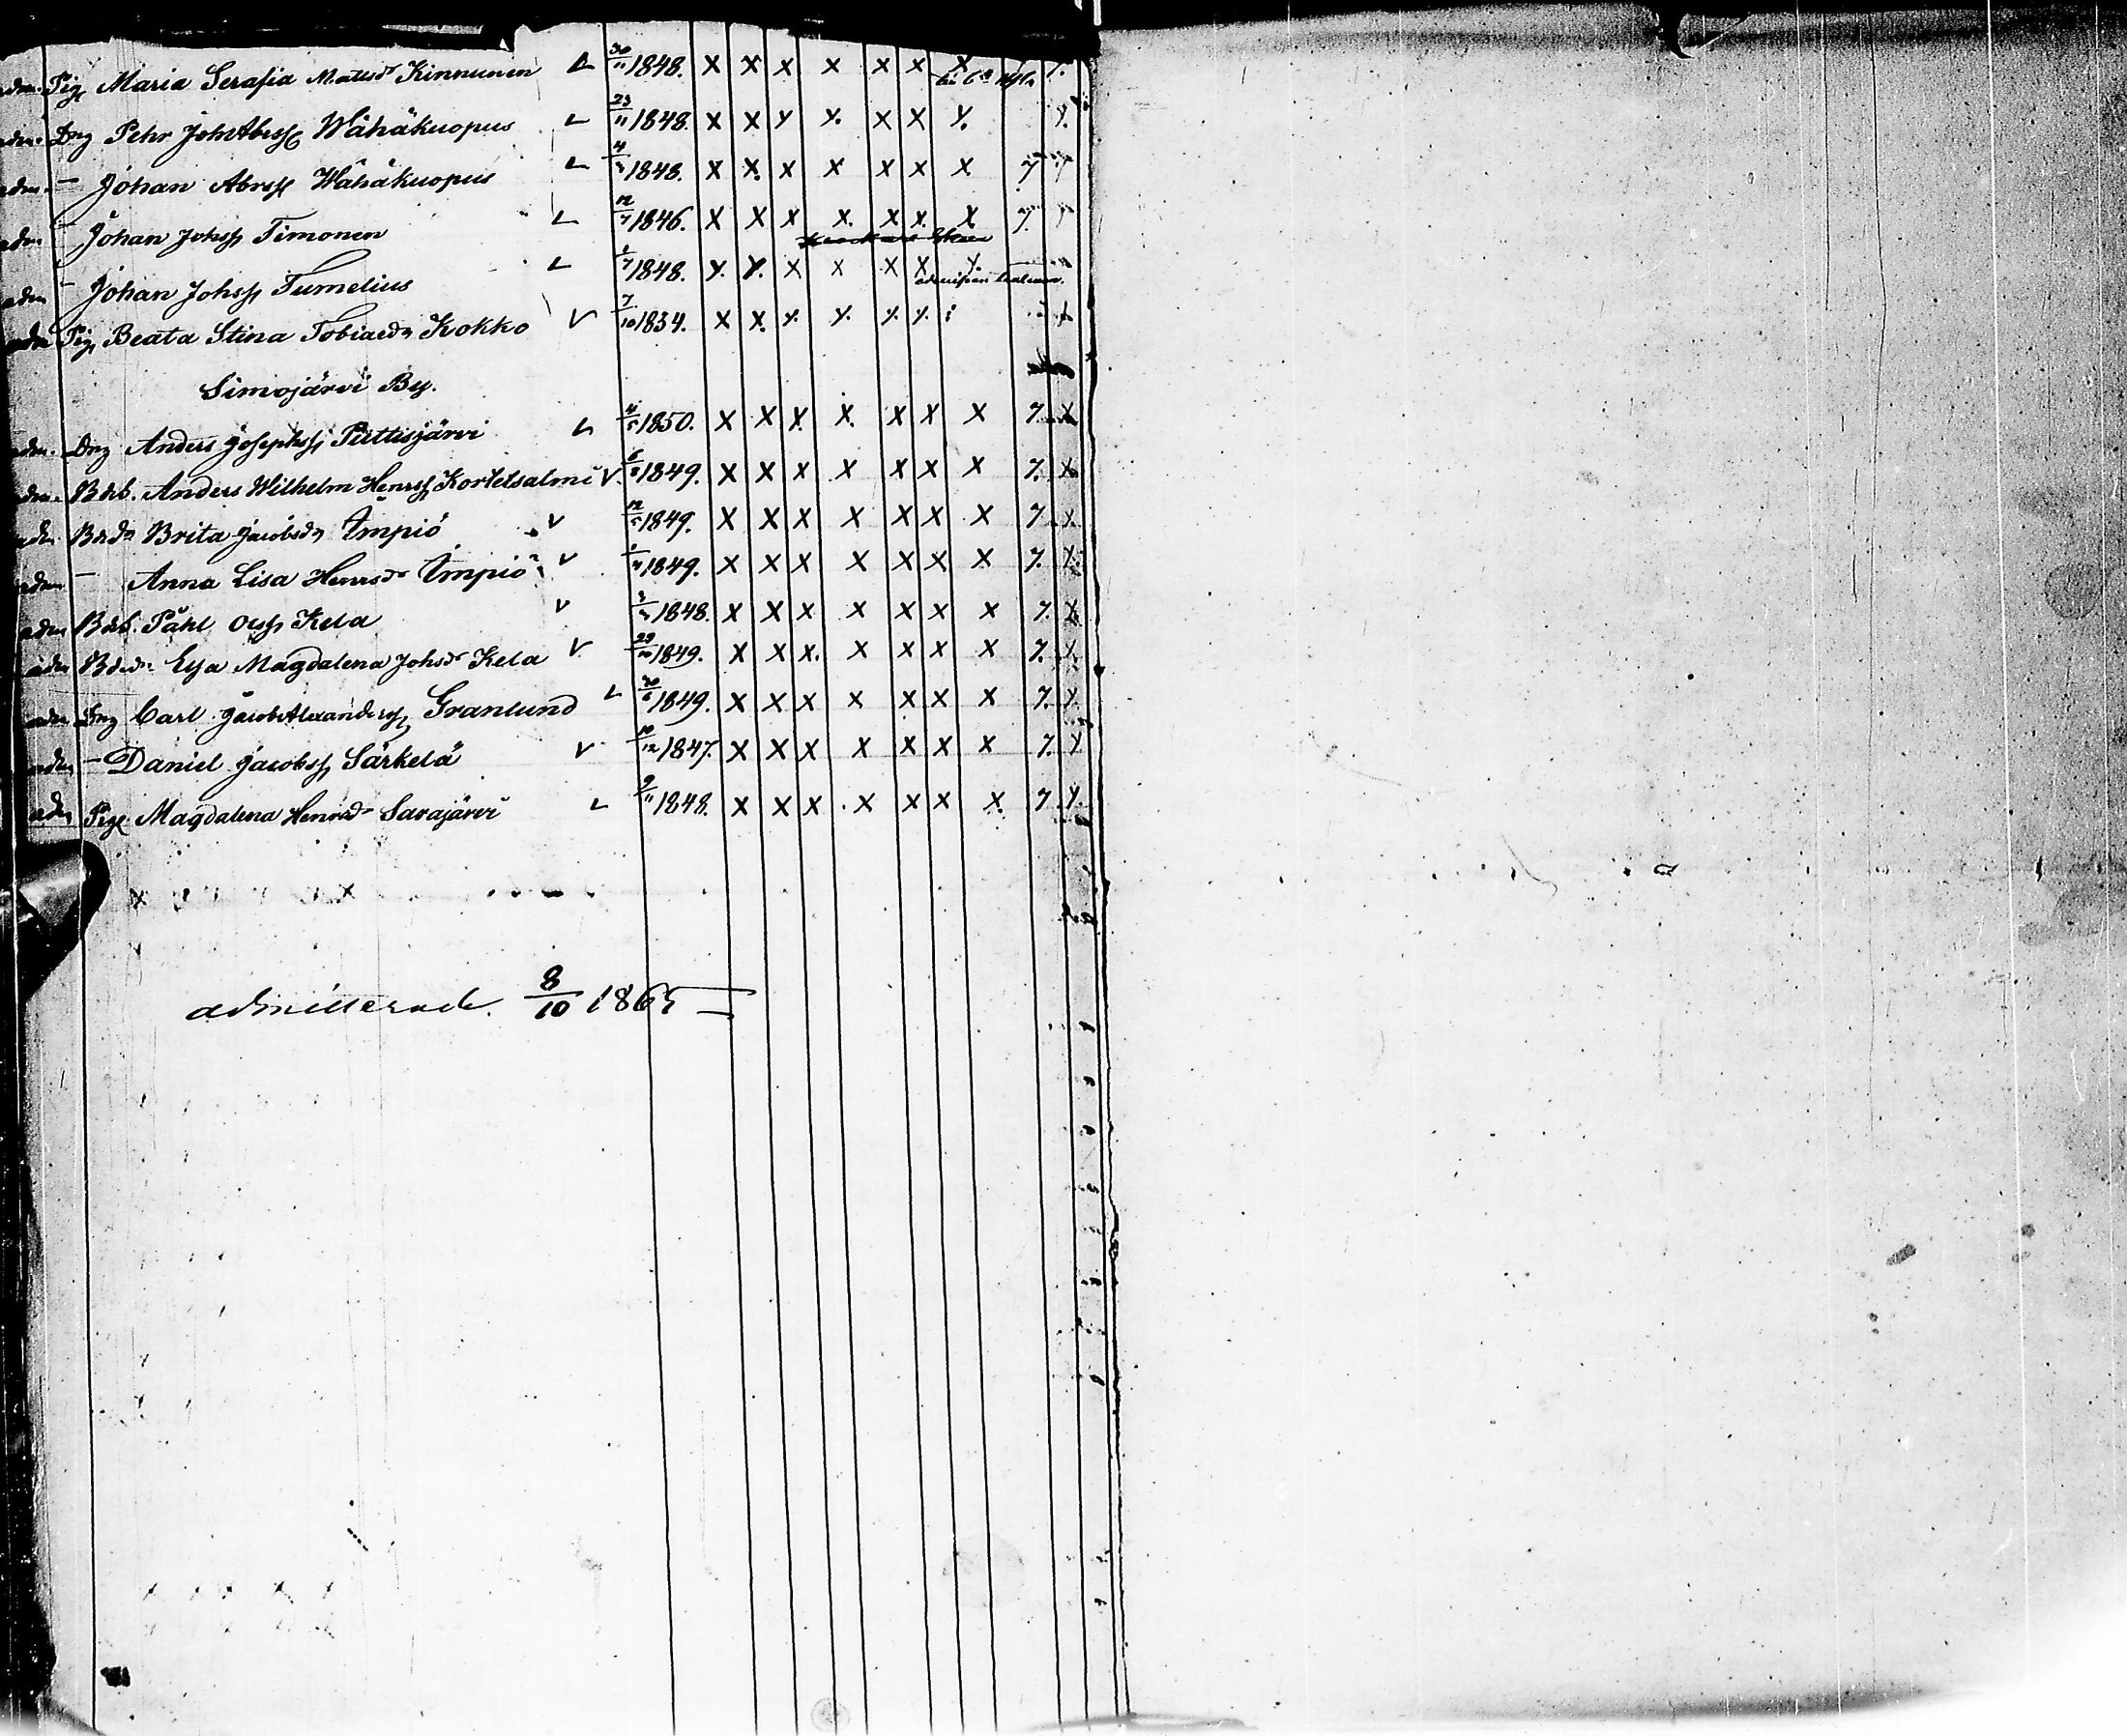 adm. Pig. Maria Serafia Mattsdr Kinnunen 30/11 1848. X X X X X X X
adm. Drg Pehr JohAbrss Wähäkuopus 23/11 1848. X X Y Y. X X Y. Y.
adm. – Johan Abrss Wähäkuopus 1848. X X. X X X X X 7
adm – Johan Johss Timonen 12/7 1846. X X X X. X X. X 7.
adm – Johan Johss Tumelius 1848. Y. Y. X X X X Y.
adm Pig. Beata Stina Tobiaedr Kokko V 7/10 1834. X X. Y. Y. Y. Y. X
Simojärvi By.
adm. Drg Anders Josephss Piittisjärvi 1850. X X X. X. X X X 7. X
adm. Bdsb. Anders Wilhelm Henrss Kortelsalmi V. 1849. X X X X X X X 7. X
adm Bdsdr Brita Jacobsdr Impiö V 12/5 1849. X X X X X X X 7. X
adm – Anna Lisa Henrsdr Impiö V 1849. X X X X X X X 7. X
adm Bdsb. Påhl Olss Kela V 1848. X X X X X X X 7. X
adm Bdsdr Eja Magdalena Johsdr Kela V 29/10 1849. X X X. X X X X 7. X
adm Drg Carl JacobAlexanderss Granlund 30/6 1849. X X X X X X X 7. X
adm – Daniel Jacobss Särkelä V 10/12 1847. X X X X X X X 7. X
adm Pige Magdalena Henrsdr Sarajärvi 9/11 1848. X X X X X X X. 7. Y.
admitterade. 8/10 1865